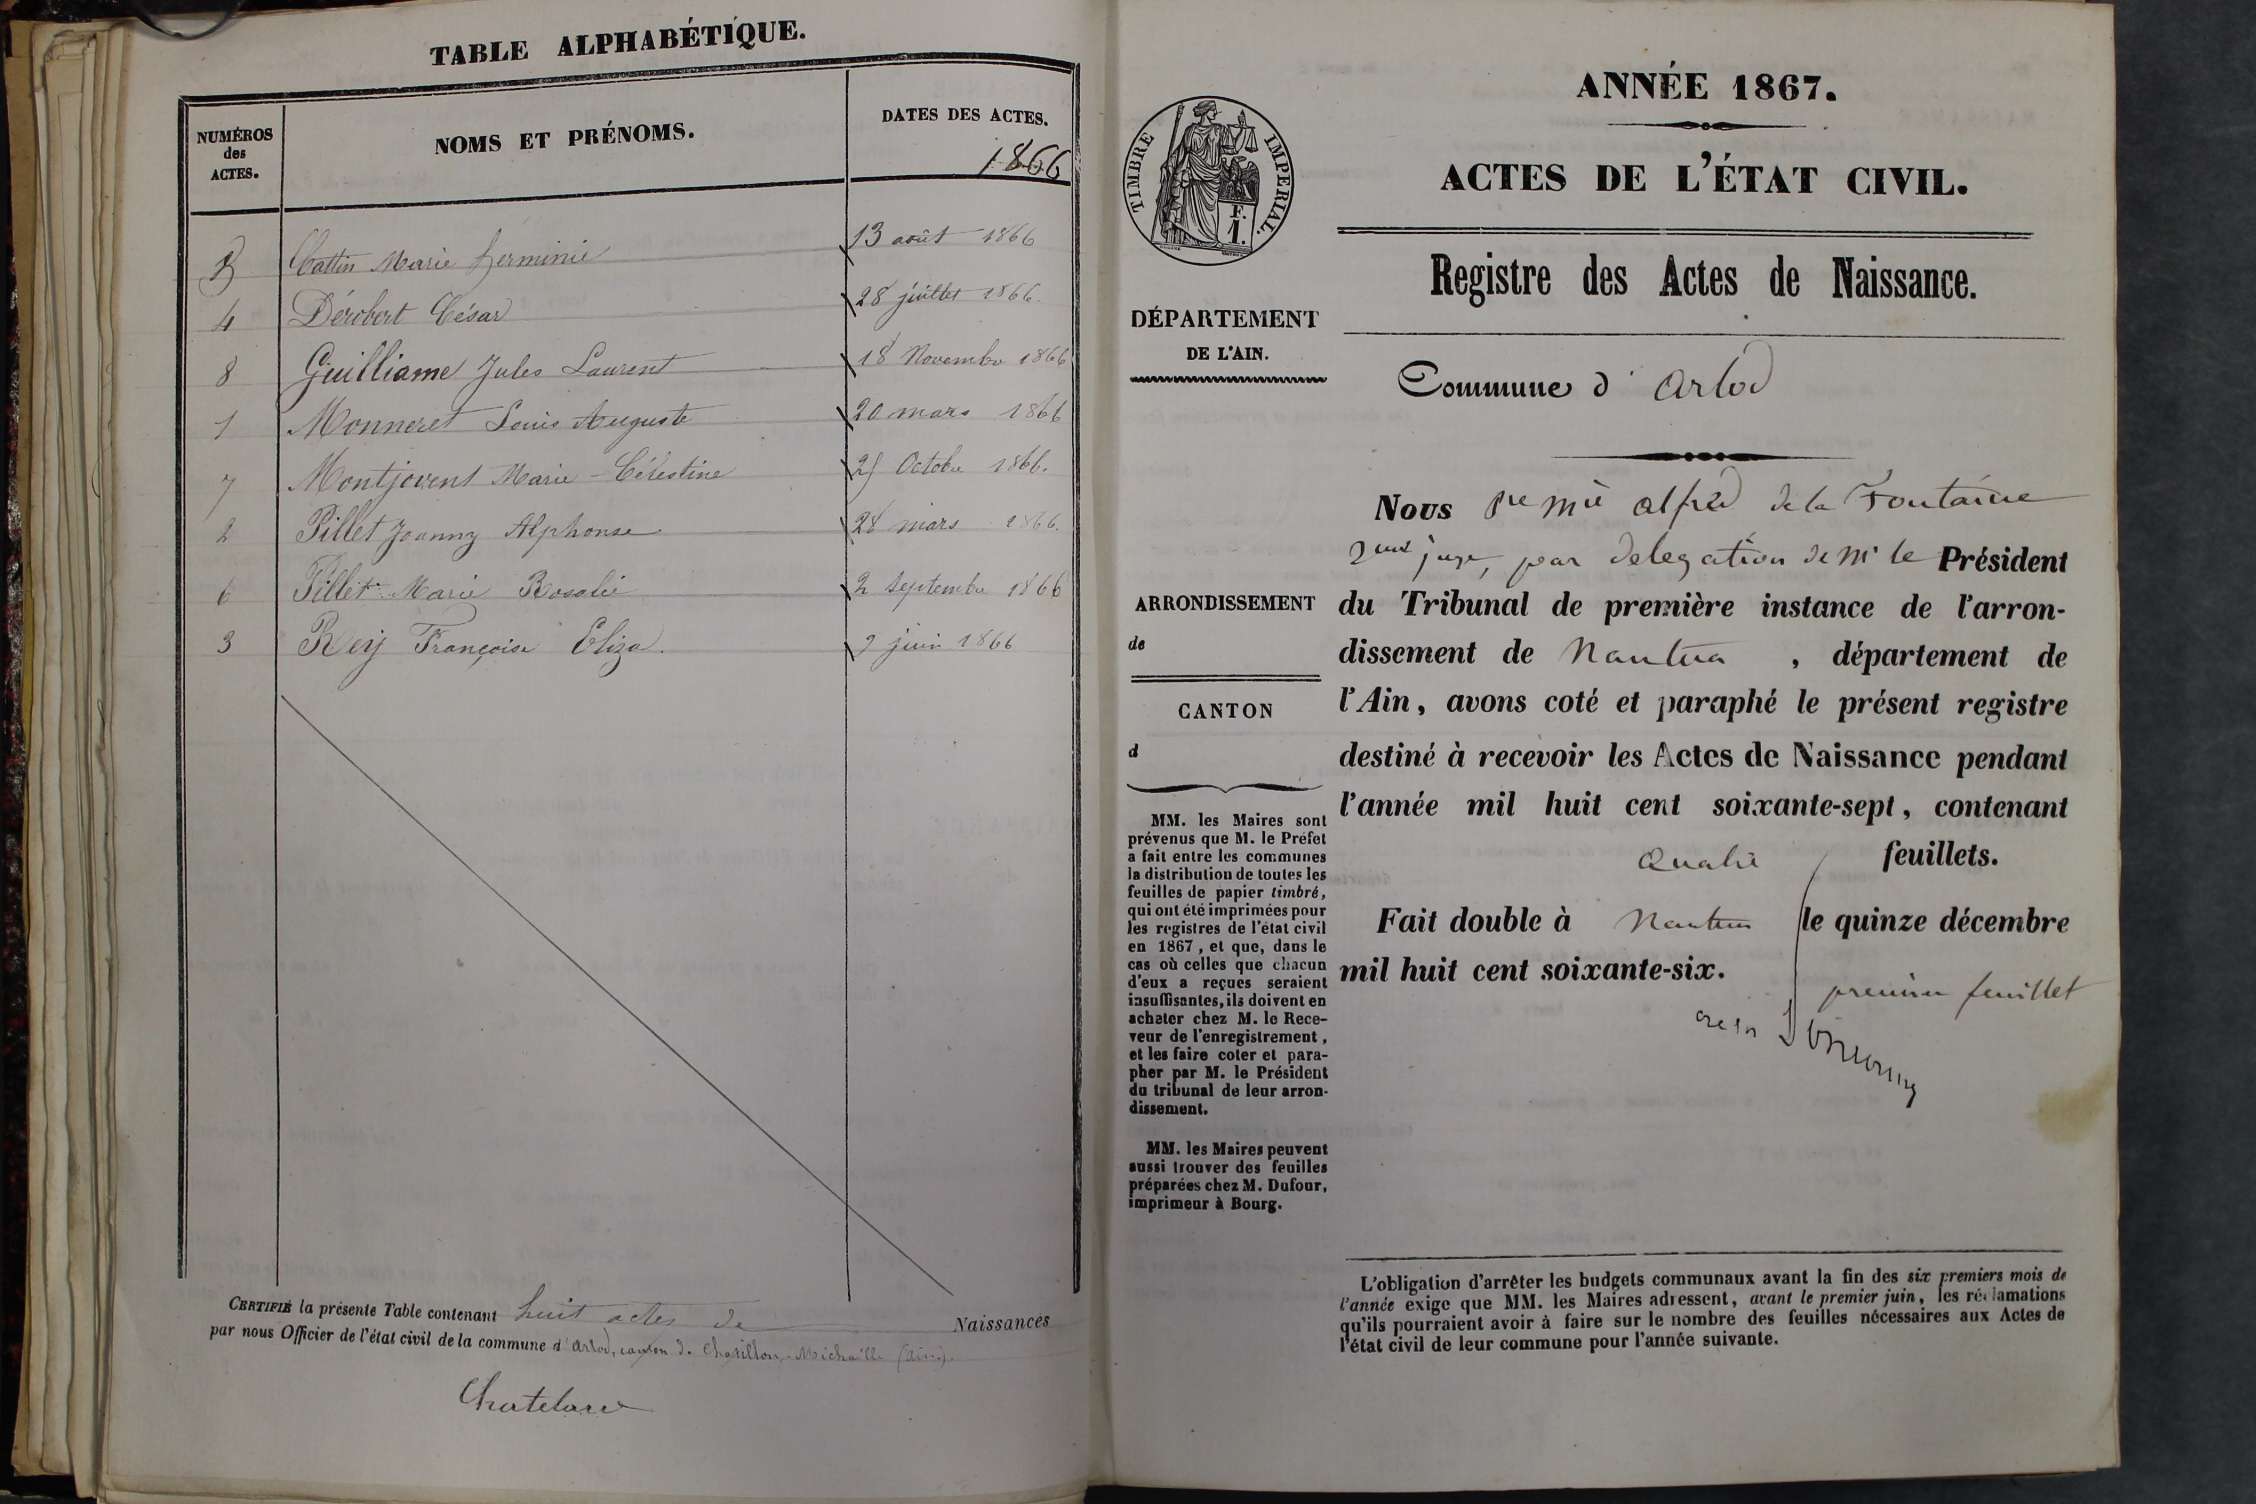 TABLE ALPHABÉTIQUE.
NUMÉROS
des
ACTES.
NOMS ET PRÉNOMS.
DATES DES ACTES.
1866
5 Cattin Marie herminie 13 août 1866
4 Dérobert César 28 juillet 1866.
8 Guilliame Jules Laurent 18 Novembre 1866
1 Monneret Louis Auguste 20 mars 1866
7 Montjovent Marie-Célestine Octobre 1866.
2 Pillet Joanny Alphonse 28 mars 1866.
6 Pillet Marie Rosalie 2 Septembre 1866
3 Rey Françoise Eliza. juin 1866
CERTIFIÉ la présente Table contenant huit actes de Naissances
par nous Officier de l'état civil de la commune d'Arlod, canton de Chatillon-Michaille (Ain).
Chatelard
TIMBRE IMPERIAL.
F.
1.
DÉPARTEMENT
DE L'AIN.
ARRONDISSEMENT
de
CANTON
d
MM. les Maires sont
prévenus que M. le Préfet
a fait entre les communes
la distribution de toutes les
feuilles de papier timbré,
qui ont été imprimées pour
les registres de l'état civil
en 1867, et que, dans le
cas où celles que chacun
d'eux a reçues seraient
insuffisantes, ils doivent en
acheter chez M. le Rece-
veur de l'enregistrement,
et les faire coter et para-
pher par M. le Président
du tribunal de leur arron-
dissement.
MM. les Maires peuvent
aussi trouver des feuilles
préparées chez M. Dufour,
imprimeur à Bourg.
ANNÉE 1867.
ACTES DE L'ÉTAT CIVIL.
Registre des Actes de Naissance.
Commune d'Arlod
Nous alfred de la Fontaine
juge, par delegation de Mr le Président
du Tribunal de première instance de l'arron-
dissement de Nantua, département de
l'Ain, avons coté et paraphé le présent registre
destiné à recevoir les Actes de Naissance pendant
l'année mil huit cent soixante-sept, contenant
Quatre feuillets.
Fait double à Nantua le quinze décembre
mil huit cent soixante-six.
premier feuillet
L'obligation d'arrêter les budgets communaux avant la fin des six premiers mois de
l'année exige que MM. les Maires adressent, avant le premier juin, les réclamations
qu'ils pourraient avoir à faire sur le nombre des feuilles nécessaires aux Actes de
l'état civil de leur commune pour l'année suivante.